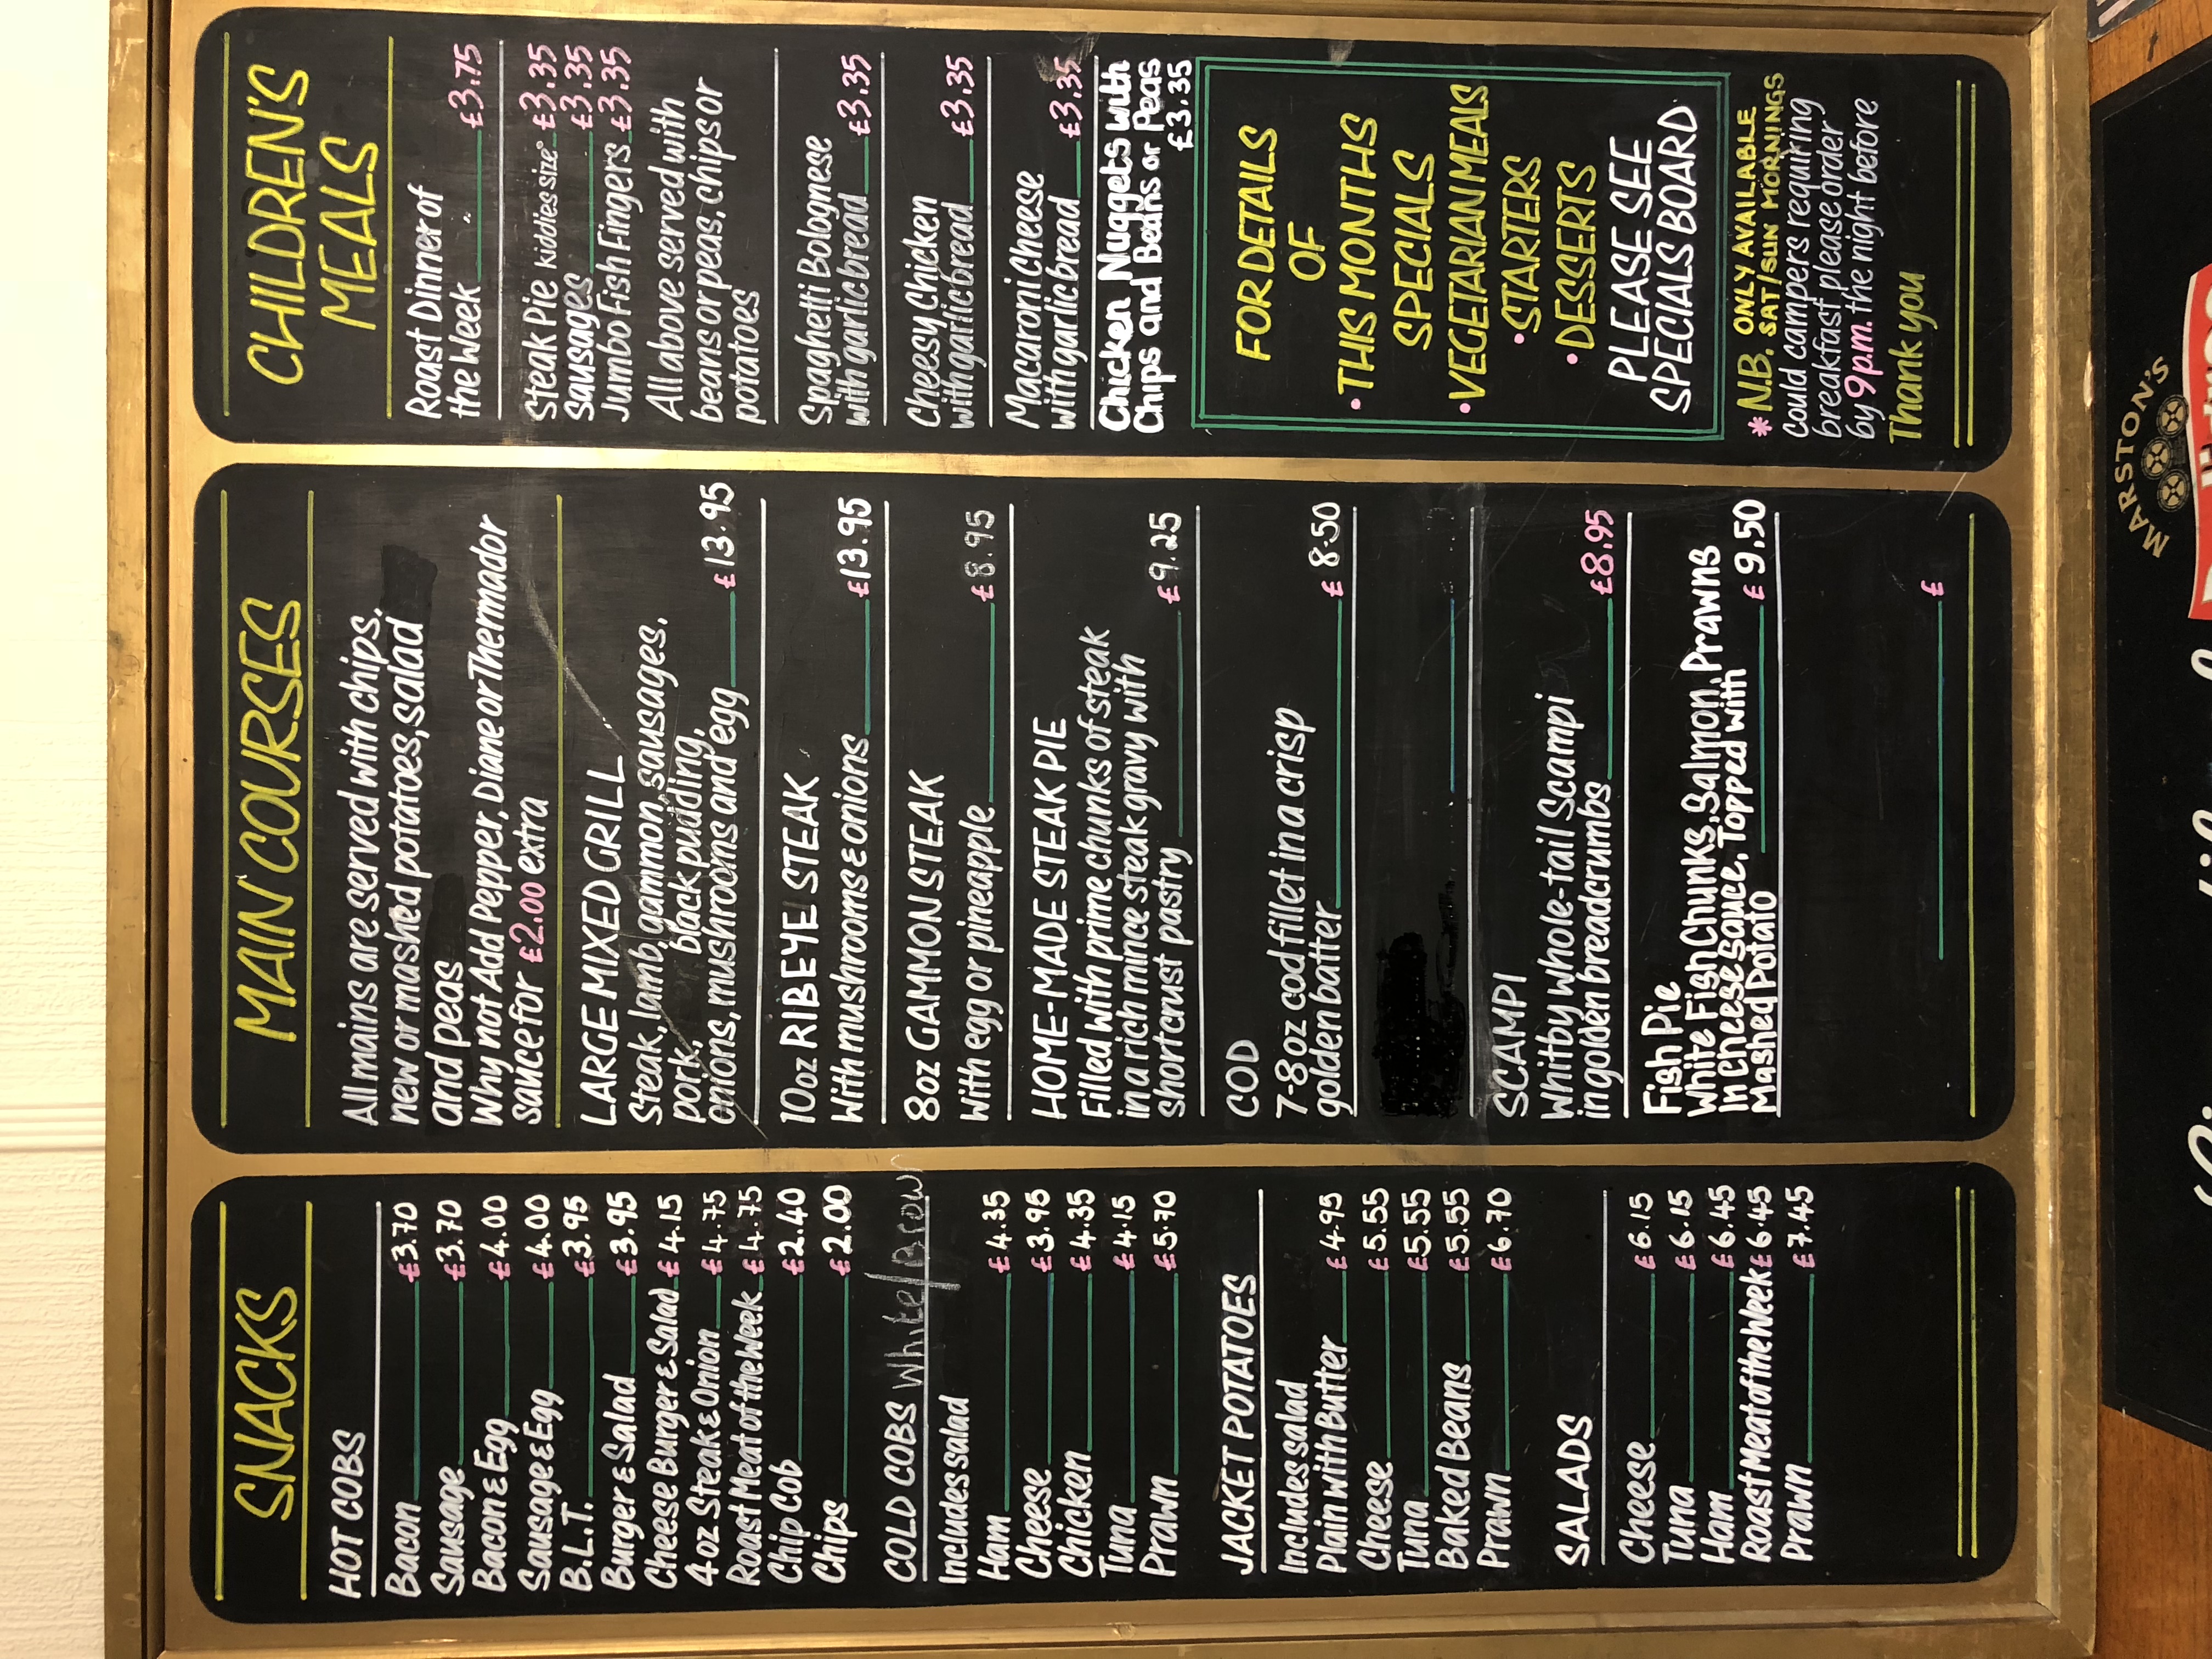 SNACKS
HOT COBS
Bacon £3.70
Sausage £3.70
Bacon & Egg £4.00
Sausage & Egg £4.00
B.L.T. £3.95
Burger & Salad £3.95
Cheese Burger & Salad £4.15
4oz Steak & Onion £4.75
Roast Meat of the Week £4.75
Chip Cob £2.40
Chips £2.00
COLD COBS White/Brown
Includes salad
Ham £4.35
Cheese £3.95
Chicken £4.35
Tuna £4.15
Prawn £5.70
JACKET POTATOES
Includes salad
Plain with Butter £4.95
Cheese £5.55
Tuna £5.55
Baked Beans £5.55
Prawn £6.70
SALADS
Cheese £6.15
Tuna £6.15
Ham £6.45
Roast Meat of the Week £6.45
Prawn £7.45
MAIN COURSES
All mains are served with chips,
new or mashed potatoes, salad
and peas
Why not Add Pepper, Diane or Thermador
sauce for £2.00 extra
LARGE MIXED GRILL
Steak, lamb, gammon, sausages,
pork, black pudding,
onions, mushrooms and egg £13.95
10oz RIBEYE STEAK
With mushrooms & onions £13.95
8oz GAMMON STEAK
With egg or pineapple £8.95
HOME-MADE STEAK PIE
Filled with prime chunks of steak
in a rich mince steak gravy with
shortcrust pastry £9.25
COD
7-8oz cod fillet in a crisp
golden batter £8.50
SCAMPI
Whitby whole-tail Scampi
in golden breadcrumbs £8.95
Fish Pie
White Fish Chunks, Salmon, Prawns
In Cheese Sauce, Topped with
Mashed Potato £9.50
£
CHILDREN'S
MEALS
Roast Dinner of
the Week £3.75
Steak Pie kiddies size £3.35
Sausages £3.35
Jumbo Fish Fingers £3.35
All above served with
beans or peas, chips or
potatoes
Spaghetti Bolognese
with garlic bread £3.35
Cheesy Chicken
with garlic bread £3.35
Macaroni Cheese
with garlic bread £3.35
Chicken Nuggets with
Chips and Beans or Peas
£3.35
FOR DETAILS
OF
•THIS MONTHS
SPECIALS
•VEGETARIAN MEALS
•STARTERS
•DESSERTS
PLEASE SEE
SPECIALS BOARD
*N.B. ONLY AVAILABLE
SAT/SUN MORNINGS
Could campers requiring
breakfast please order
by 9p.m. the night before
Thank you
MARSTON'S